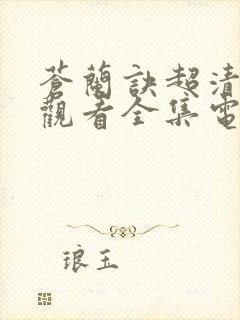 蒼蘭訣超清
觀看全集電
琅玉